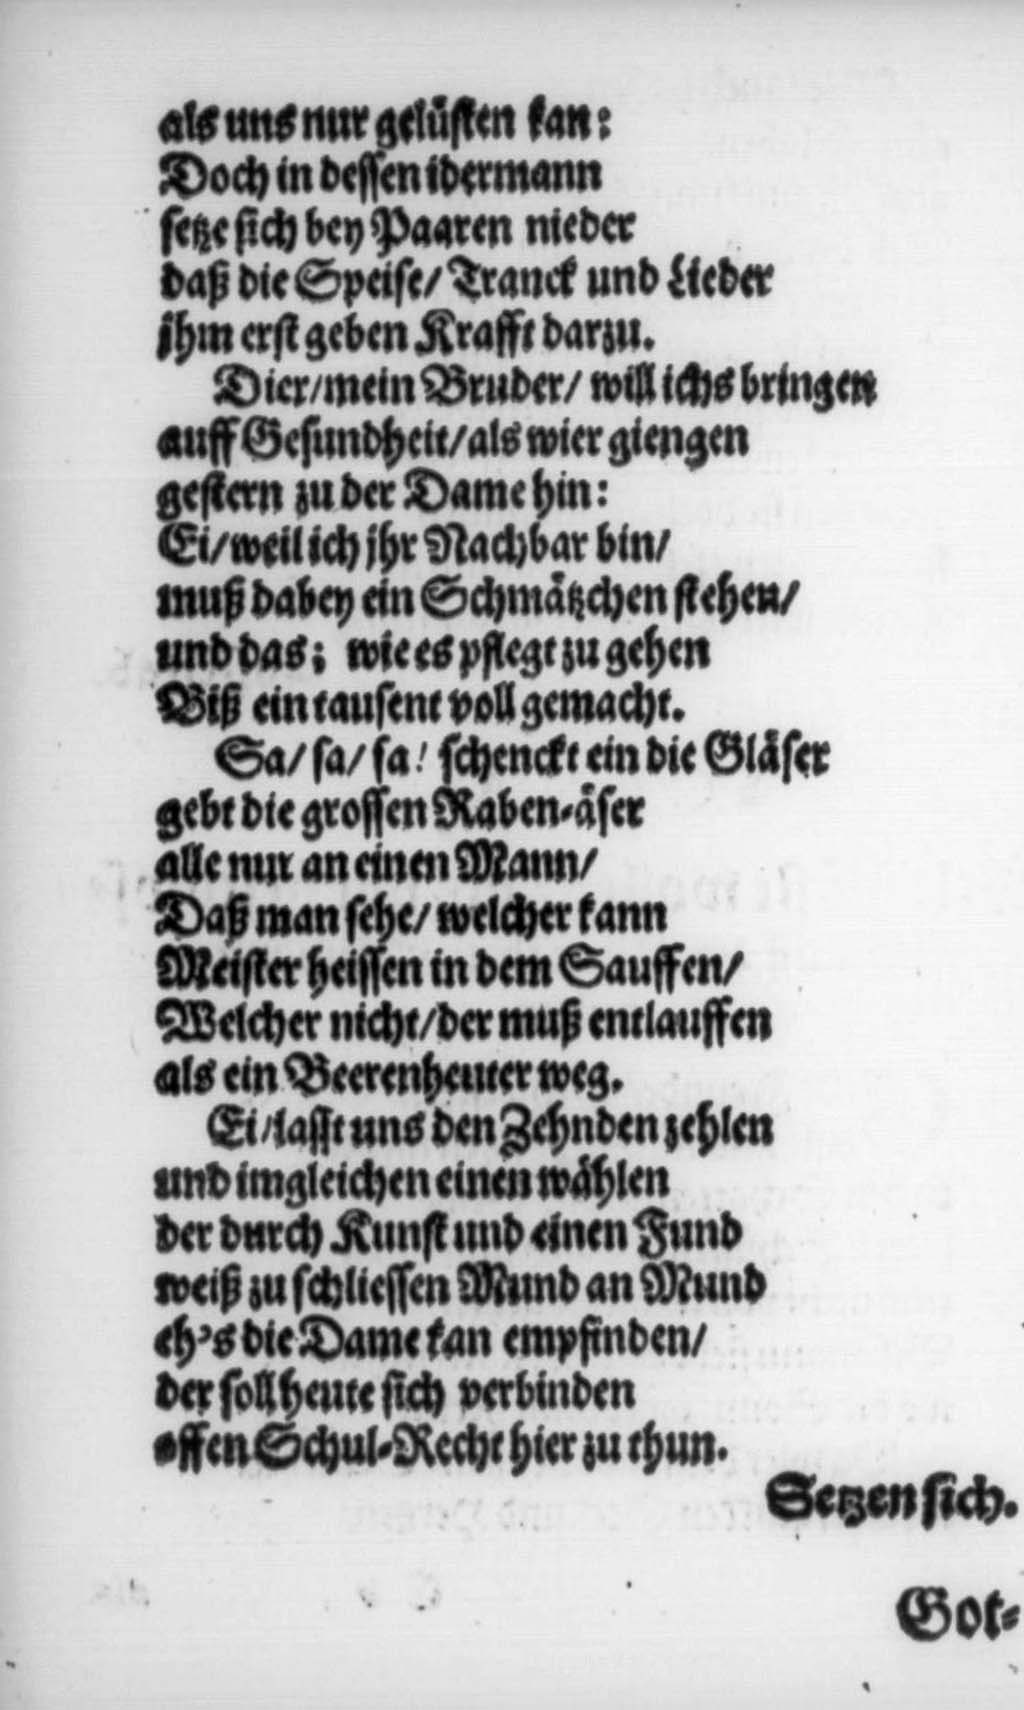 als uns nur gelüsten kan:
Doch in dessen idermann
setze sich bey Paaren nieder
daß die Speise/ Tranck und Lieder
jhm erst geben Krafft darzu.
Dier/mein Bruder/ will ichs bringen
auff Gesundheit/als wier giengen
gestern zu der Dame hin:
Ei/weil ich jhr Nachbar bin/
muß dabey ein Schmätzchen stehen/
und das; wie es pflegt zu gehen
Biß ein tausent voll gemacht.
Sa/ sa/ sa! schenckt ein die Gläser
gebt die grossen Raben-äser
alle nur an einen Mann/
Daß man sehe/ welcher kann
Meister heissen in dem Sauffen/
Welcher nicht/der muß entlauffen
als ein Beerenheuter weg.
Ei/lasst uns den Zehnden zehlen
und imgleichen einen wählen
der durch Kunst und einen Fund
weiß zu schliessen Mund an Mund
eh's die Dame kan empfinden/
der soll heute sich verbinden
offen Schul-Recht hier zu thun.
Setzen sich.
Got-